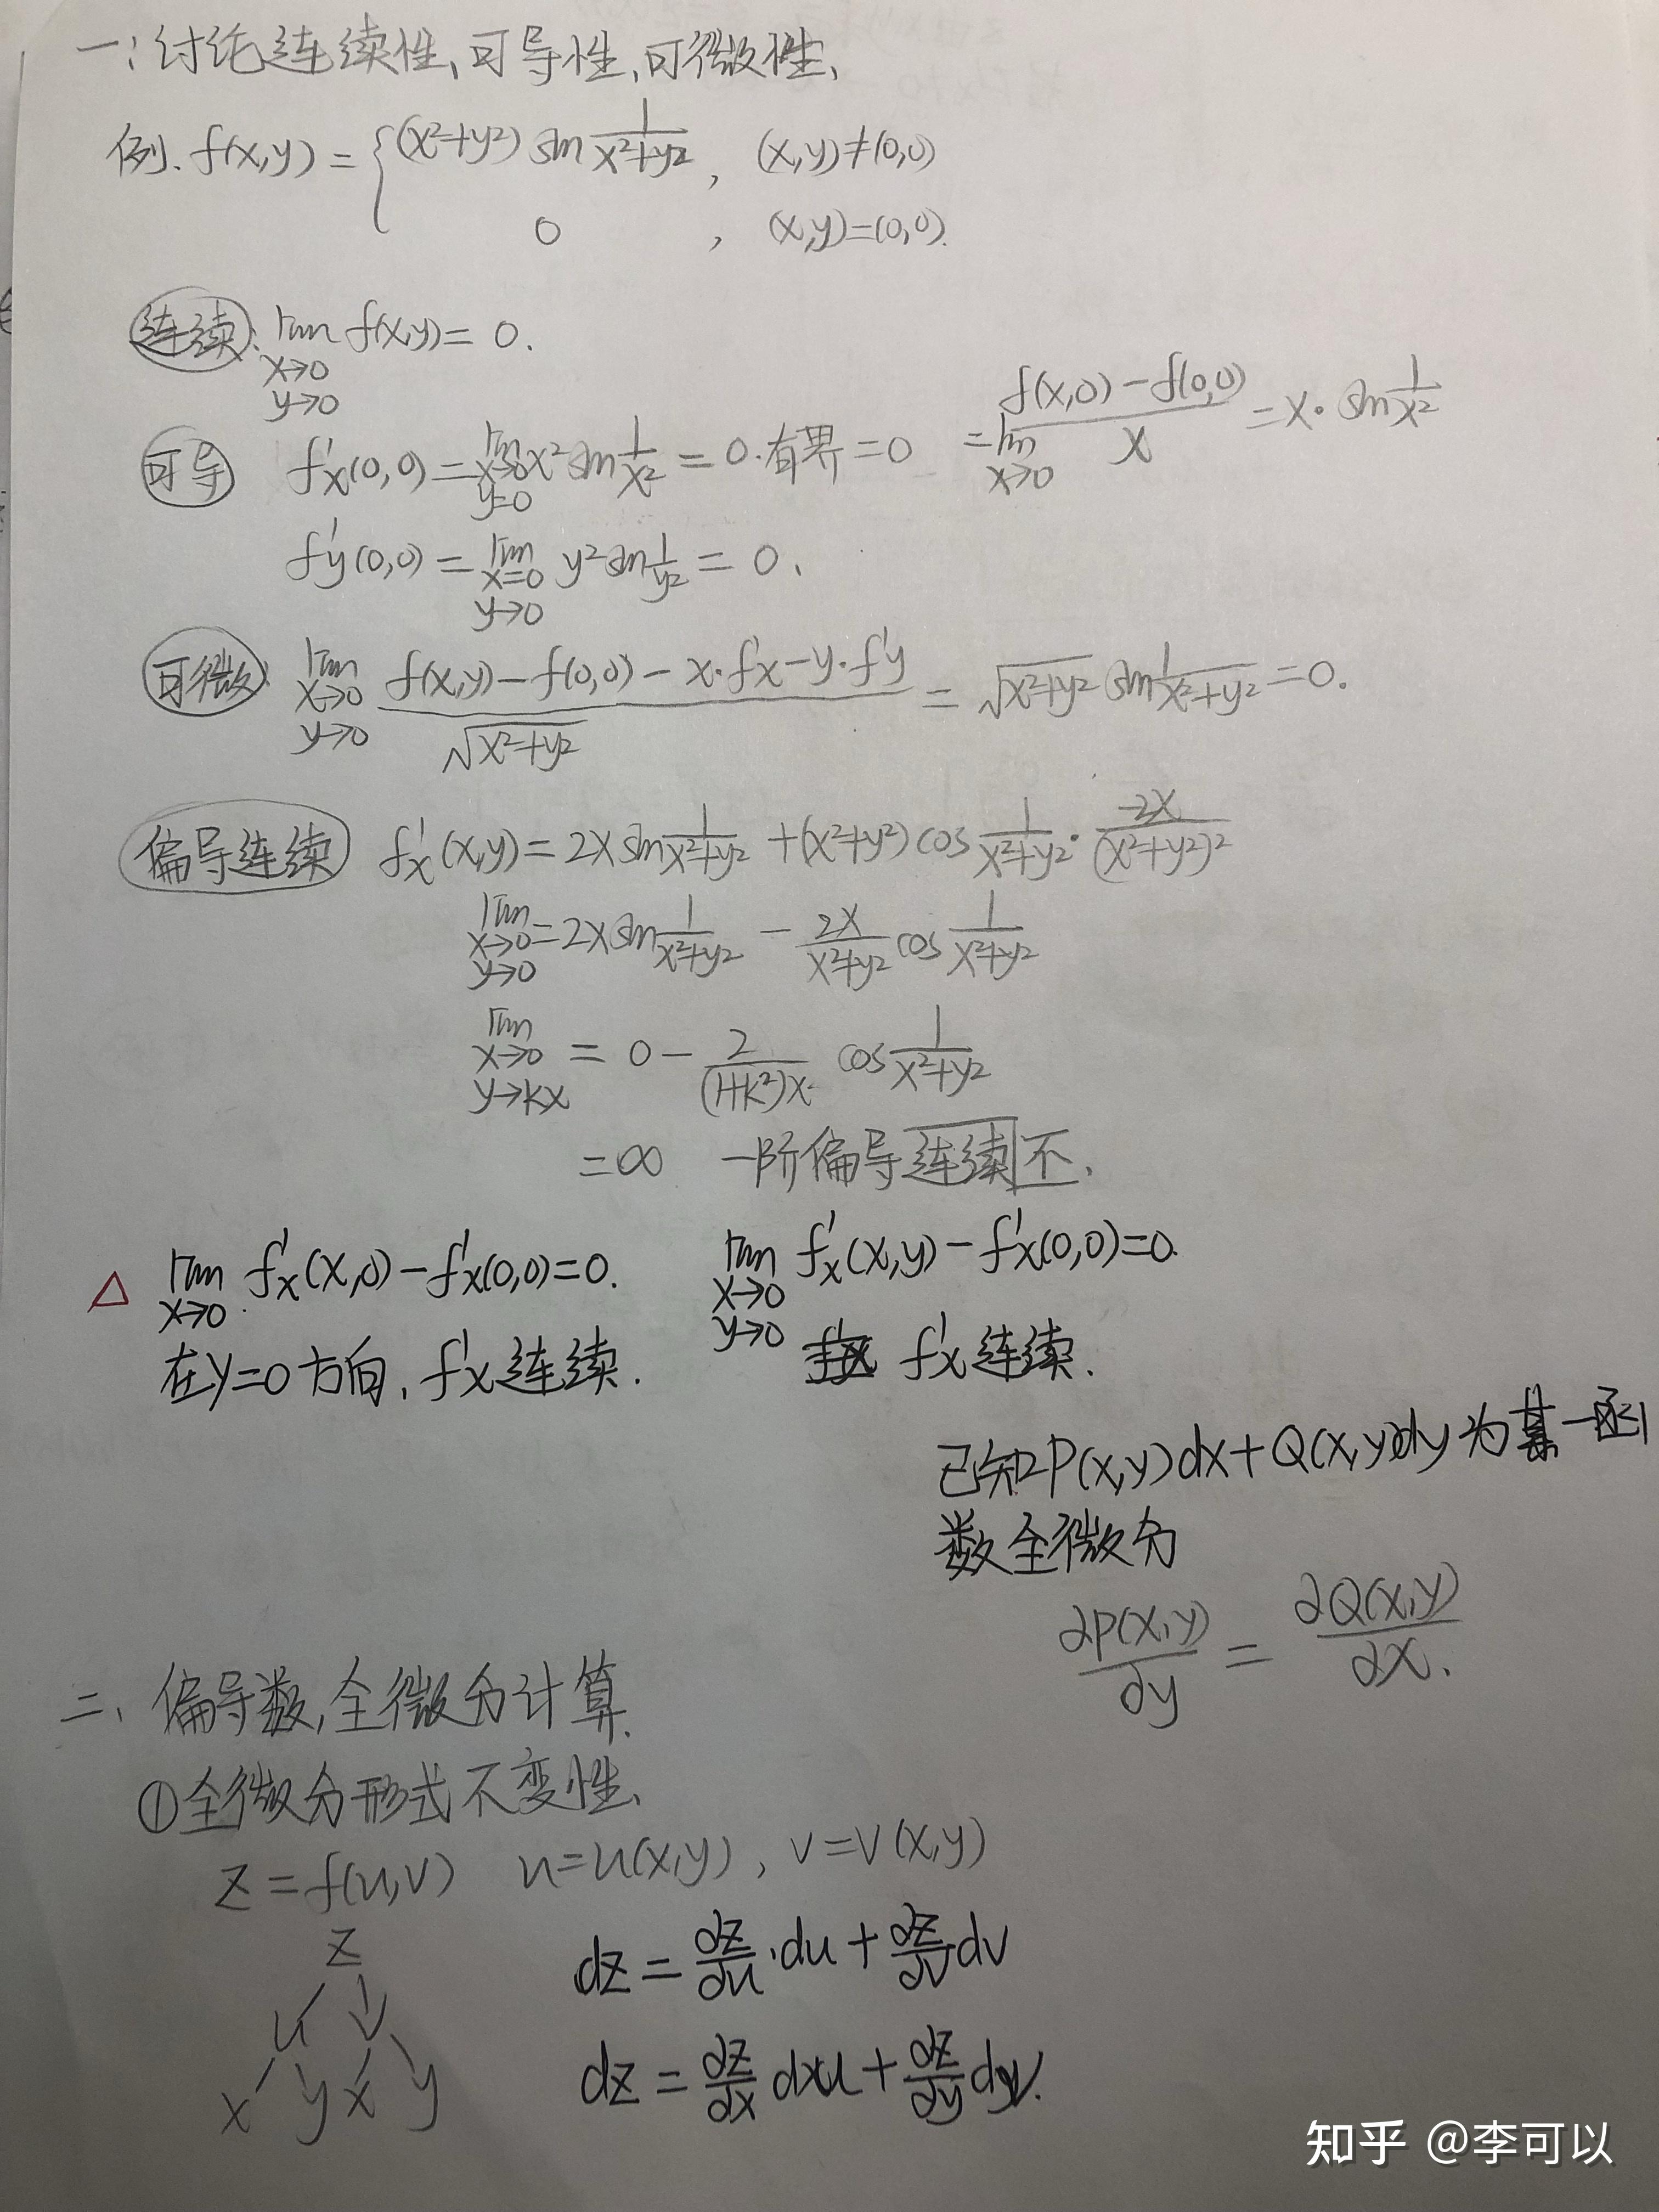 一:讨论连续性、可导性、可微性、
例. f(x,y) = { (x²+y²) sin 1/(x²+y²) , (x,y)≠(0,0)
0 , (x,y)=(0,0).
连续: lim x→0 y→0 f(x,y) = 0.
可导 f'x(0,0) = lim x→0 y=0 x² sin 1/x² = 0·有界 = 0 = lim x→0 (f(x,0)-f(0,0))/x = x· sin 1/x²
f'y(0,0) = lim x=0 y→0 y² sin 1/y² = 0、
可微: lim x→0 y→0 (f(x,y)-f(0,0)-x·f'x-y·f'y)/√(x²+y²) = √(x²+y²) sin 1/(x²+y²) = 0.
偏导连续 f'x(x,y) = 2x sin 1/(x²+y²) + (x²+y²) cos 1/(x²+y²) · -2x/(x²+y²)²
lim x→0 y→0 = 2x sin 1/(x²+y²) - 2x/(x²+y²) cos 1/(x²+y²)
lim x→0 y→kx = 0 - 2/((1+k²)x) cos 1/(x²+y²)
= ∞ 一阶偏导连续不.
△ lim x→0 f'x(x,0) - f'x(0,0) = 0. lim x→0 y→0 f'x(x,y) - f'x(0,0) = 0.
在y=0方向, f'x连续. f'x连续.
已知P(x,y)dx+Q(x,y)dy为某一函
数全微分
∂P(x,y)/∂y = ∂Q(x,y)/∂x.
二、偏导数,全微分计算.
①全微分形式不变性、
z = f(u,v) u=u(x,y), v=v(x,y)
z
u v
x y x y
dz = ∂z/∂u · du + ∂z/∂v dv
dz = ∂z/∂x dx + ∂z/∂y dy.
知乎 @李可以